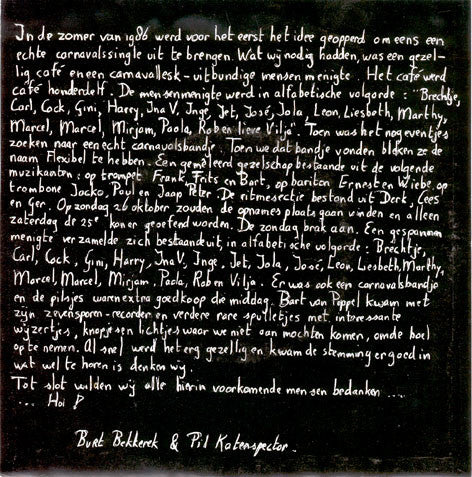 In de zomer van 1986 werd voor het eerst het idee geopperd om eens een
echte carnavalssingle uit te brengen. Wat wij nodig hadden, was een gezel-
lig café en een carnavallesk - uitbundige mensenmenigte. Het café werd
café honderdelf. De mensenmenigte werd in alfabetische volgorde: "Brechtje,
Carl, Cock, Gini, Harry, Ina V, Inge, Jet, José, Jola, Leon, Liesbeth, Marthy,
Marcel, Marcel, Mirjam, Paola, Rob en lieve Vilja". Toen was het nog eventjes
zoeken naar een echt carnavalsbandje. Toen we dat bandje vonden bleken ze de
naam Flexibel te hebben. Een gemêleerd gezelschap bestaande uit de volgende
muzikanten: op trompet Frank, Frits en Bart, op bariton Ernest en Wiebe, op
trombone Jacko, Paul en Jaap Peter. De ritmesectie bestond uit Dert, Cees
en Ger. Op zondag 26 oktober zouden de opnames plaats gaan vinden en alleen
zaterdag de 25e kon er geoefend worden. De zondag brak aan. Een gespannen
menigte verzamelde zich bestaande uit, in alfabetische volgorde: Brechtje,
Carl, Cock, Gini, Harry, Ina V, Inge, Jet, Jola, José, Leon, Liesbeth, Marthy,
Marcel, Marcel, Mirjam, Paola, Rob en Vilja. Er was ook een carnavalsbandje
en de pilsjes waren extra goedkoop die middag. Bart van Poppel kwam met
zijn zevensporen-recorder en verdere rare spulletjes met interessante
wijzertjes, knopjes en lichtjes waar we niet aan mochten komen, om de boel
op te nemen. Al snel werd het erg gezellig en kwam de stemming er goed in
wat wel te horen is denken wij.
Tot slot wilden wij alle hierin voorkomende mensen bedanken ....
... Hoi !
Burt Bekkerek & Pil Katenspector.